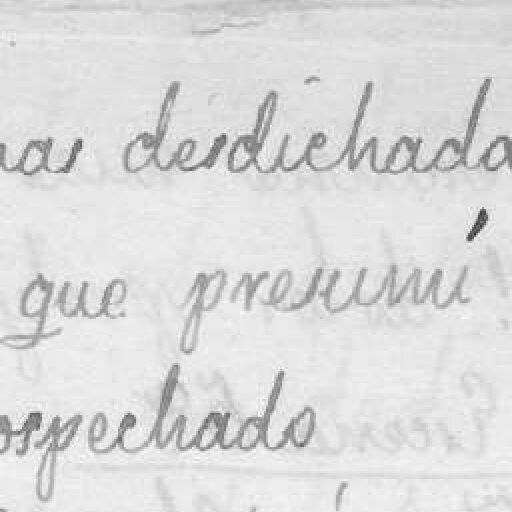 mas desdichada
que presumí
ospechado